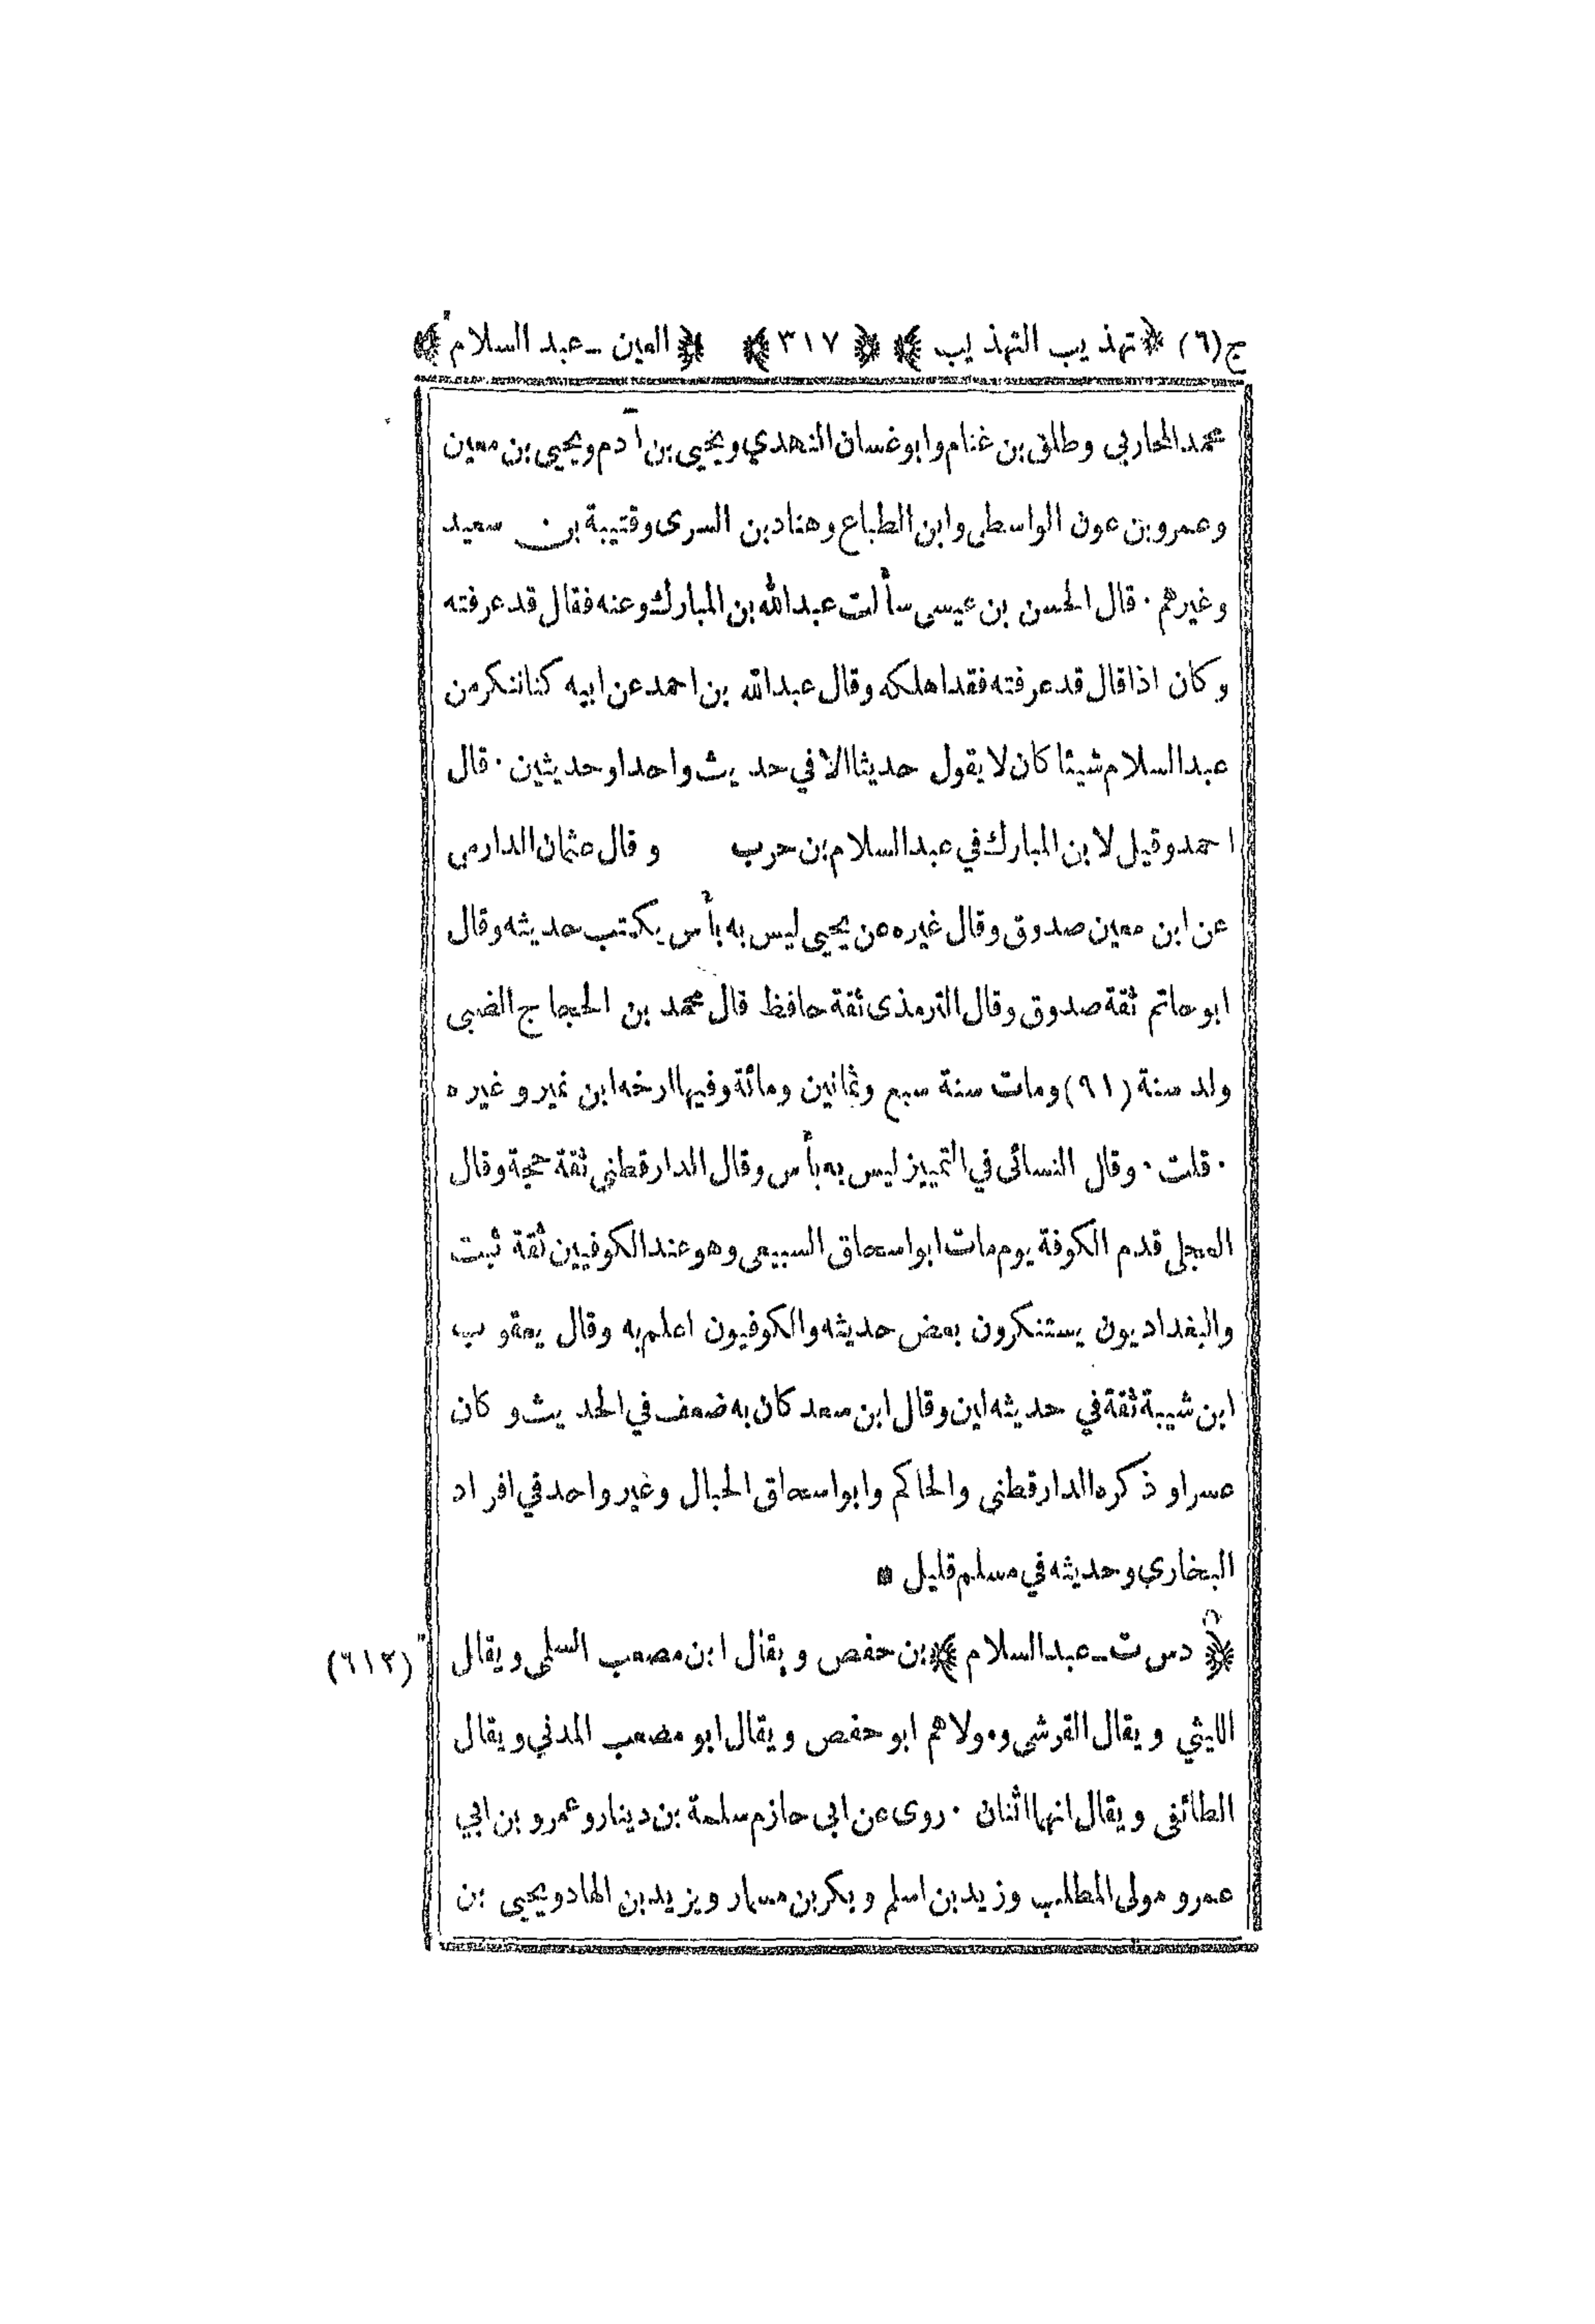 ج(٦) ﴿تهذيب التهذيب﴾ ﴿٣١٧﴾ ﴿العين - عبد السلام﴾
محمد المحاربي وطلق بن غنام وابو غسان النهدي ويحيى بن آدم ويحيى بن معين
وعمرو بن عون الواسطى وابن الطباع وهناد بن السرى وقتيبة بن سعيد
وغيرهم · قال الحسن بن عيسى سألت عبد الله بن المبارك وعنه فقال قد عرفته
وكان اذا قال قد عرفته فقد اهلكه وقال عبد الله بن احمد عن ابيه كنا ننكر من
عبد السلام شيئا كان لا يقول حديثا الا في حديث واحد او حديثين · قال
احمد وقيل لابن المبارك في عبد السلام بن حرب وقال عثمان الدارمى
عن ابن معين صدوق وقال غيره عن يحيى ليس به بأس يكتب حديثه وقال
ابو حاتم ثقة صدوق وقال الترمذى ثقة حافظ قال محمد بن الحجاج الضبى
ولد سنة (٩١) ومات سنة سبع وثمانين ومائة وفيها ارخه ابن نمير وغيره
· قلت · وقال النسائى في التمييز ليس به بأس وقال الدارقطنى ثقة حجة وقال
العجلى قدم الكوفة يوم مات ابو اسحاق السبيعى وهو عند الكوفيين ثقة ثبت
والبغداديون يستنكرون بعض حديثه والكوفيون اعلم به وقال يعقوب
ابن شيبة ثقة في حديثه لين وقال ابن سعد كان به ضعف في الحديث وكان
عسرا وذكره الدارقطنى والحاكم وابو اسحاق الحبال وغير واحد في افراد
البخاري وحديثه في مسلم قليل *
﴿دس ت - عبد السلام﴾ بن حفص ويقال ابن مصعب السلمى ويقال (٦١٣)
الليثي ويقال القرشى ومولاهم ابو حفص ويقال ابو مصعب المدني ويقال
الطائفى ويقال انهما اثنان · روى عن ابى حازم سلمة بن دينار وعمرو بن ابي
عمرو مولى المطلب وزيد بن اسلم وبكر بن مسمار ويزيد بن الهاد ويحيى بن